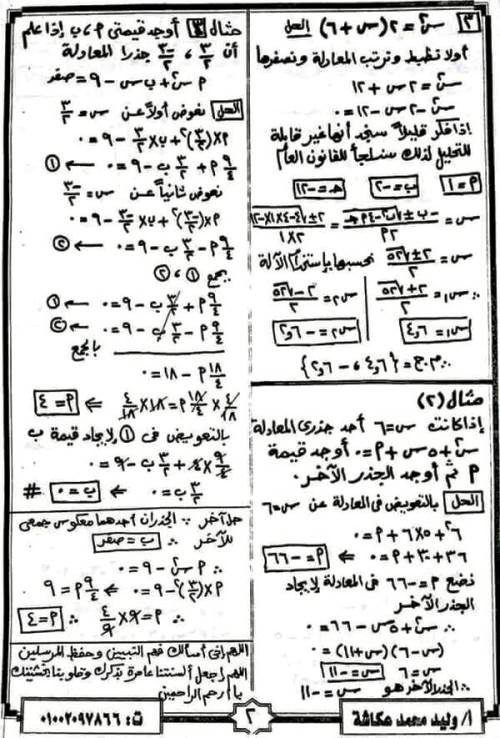 ٣ س٢ = ٢ (س + ٦) الحل
أولا نظبط ونرتب المعادلة ونصفرها
س٢ = ٢س + ١٢
س٢ - ٢س - ١٢ = ٠
إذا فكر قليلاً ستجد أنها غير قابلة
للتحليل لذلك سنلجأ للقانون العام
٢ ± √٥٢ / ٢ نحسبها بإستخدام الآلة
س١ = ٢ + √٥٢ / ٢
س٢ = ٢ - √٥٢ / ٢
س١ = ٤٫٦
س٢ = -٢٫٦
∴ م.ح = {٤٫٦ ، -٢٫٦}
مثال (٢)
إذا كانت س = ٦ أحد جذرى المعادلة
س٢ + ٥س + P = ٠ أوجد قيمة
P ثم أوجد الجذر الآخر.
الحل بالتعويض فى المعادلة عن س = ٦
٦٢ + ٥×٦ + P = ٠
٣٦ + ٣٠ + P = ٠ ⇐ P = -٦٦
نضع P = -٦٦ فى المعادلة لإيجاد
الجذر الآخر
∴ س٢ + ٥س - ٦٦ = ٠
(س - ٦) (س + ١١) = ٠
س = ٦ س = -١١
∴ الجذر الآخر هو س = -١١
مثال ٣ أوجد قيمتى P ، ب إذا علم
أن ٣/٢ ، -٣/٢ جذرا المعادلة
P س٢ + ب س - ٩ = صفر
الحل نعوض أولاً عن س = ٣/٢
P×(٣/٢)٢ + ب×٣/٢ - ٩ = ٠
٩/٤ P + ٣/٢ ب - ٩ = ٠ ← ١
نعوض ثانياً عن س = -٣/٢
P×(-٣/٢)٢ + ب×-٣/٢ - ٩ = ٠
٩/٤ P - ٣/٢ ب - ٩ = ٠ ← ٢
بجمع ١ ، ٢
٩/٤ P + ٣/٢ ب - ٩ = ٠ ← ١
٩/٤ P - ٣/٢ ب - ٩ = ٠ ← ٢
بالجمع
١٨/٤ P - ١٨ = ٠
٤/١٨ × ١٨/٤ P = ١٨ × ٤/١٨ ⇐ P = ٤
بالتعويض فى ١ لإيجاد قيمة ب
٩/٤ × ٤ + ٣/٢ ب - ٩ = ٠
٣/٢ ب = ٠ ⇐ ب = ٠ #
حل آخر ∵ الجذران أحدهما معكوس جمعى
للآخر ∴ ب = صفر
∴ P س٢ - ٩ = ٠
P×(٣/٢)٢ - ٩ = ٠ ⇐ ٩/٤ P = ٩
∴ P = ٩ × ٤/٩ ∴ P = ٤
اللهم إنى أسألك فهم النبيين وحفظ المرسلين
اللهم اجعل ألسنتنا عامرة بذكرك وقلوبنا بخشيتك
يا أرحم الراحمين
أ/ وليد محمد عكاشة
٢
ت: ٠١٠٠٢٠٩٧٨٦٦